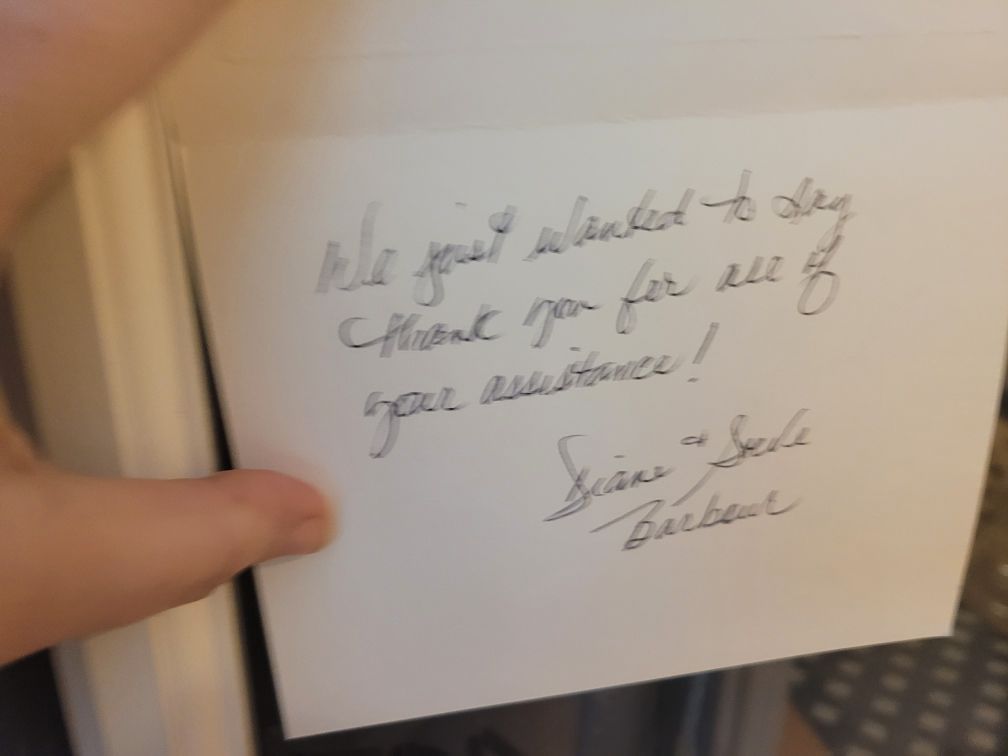 We just wanted to say
thank you for all of
your assistance!
Diane & Steve
Barbour